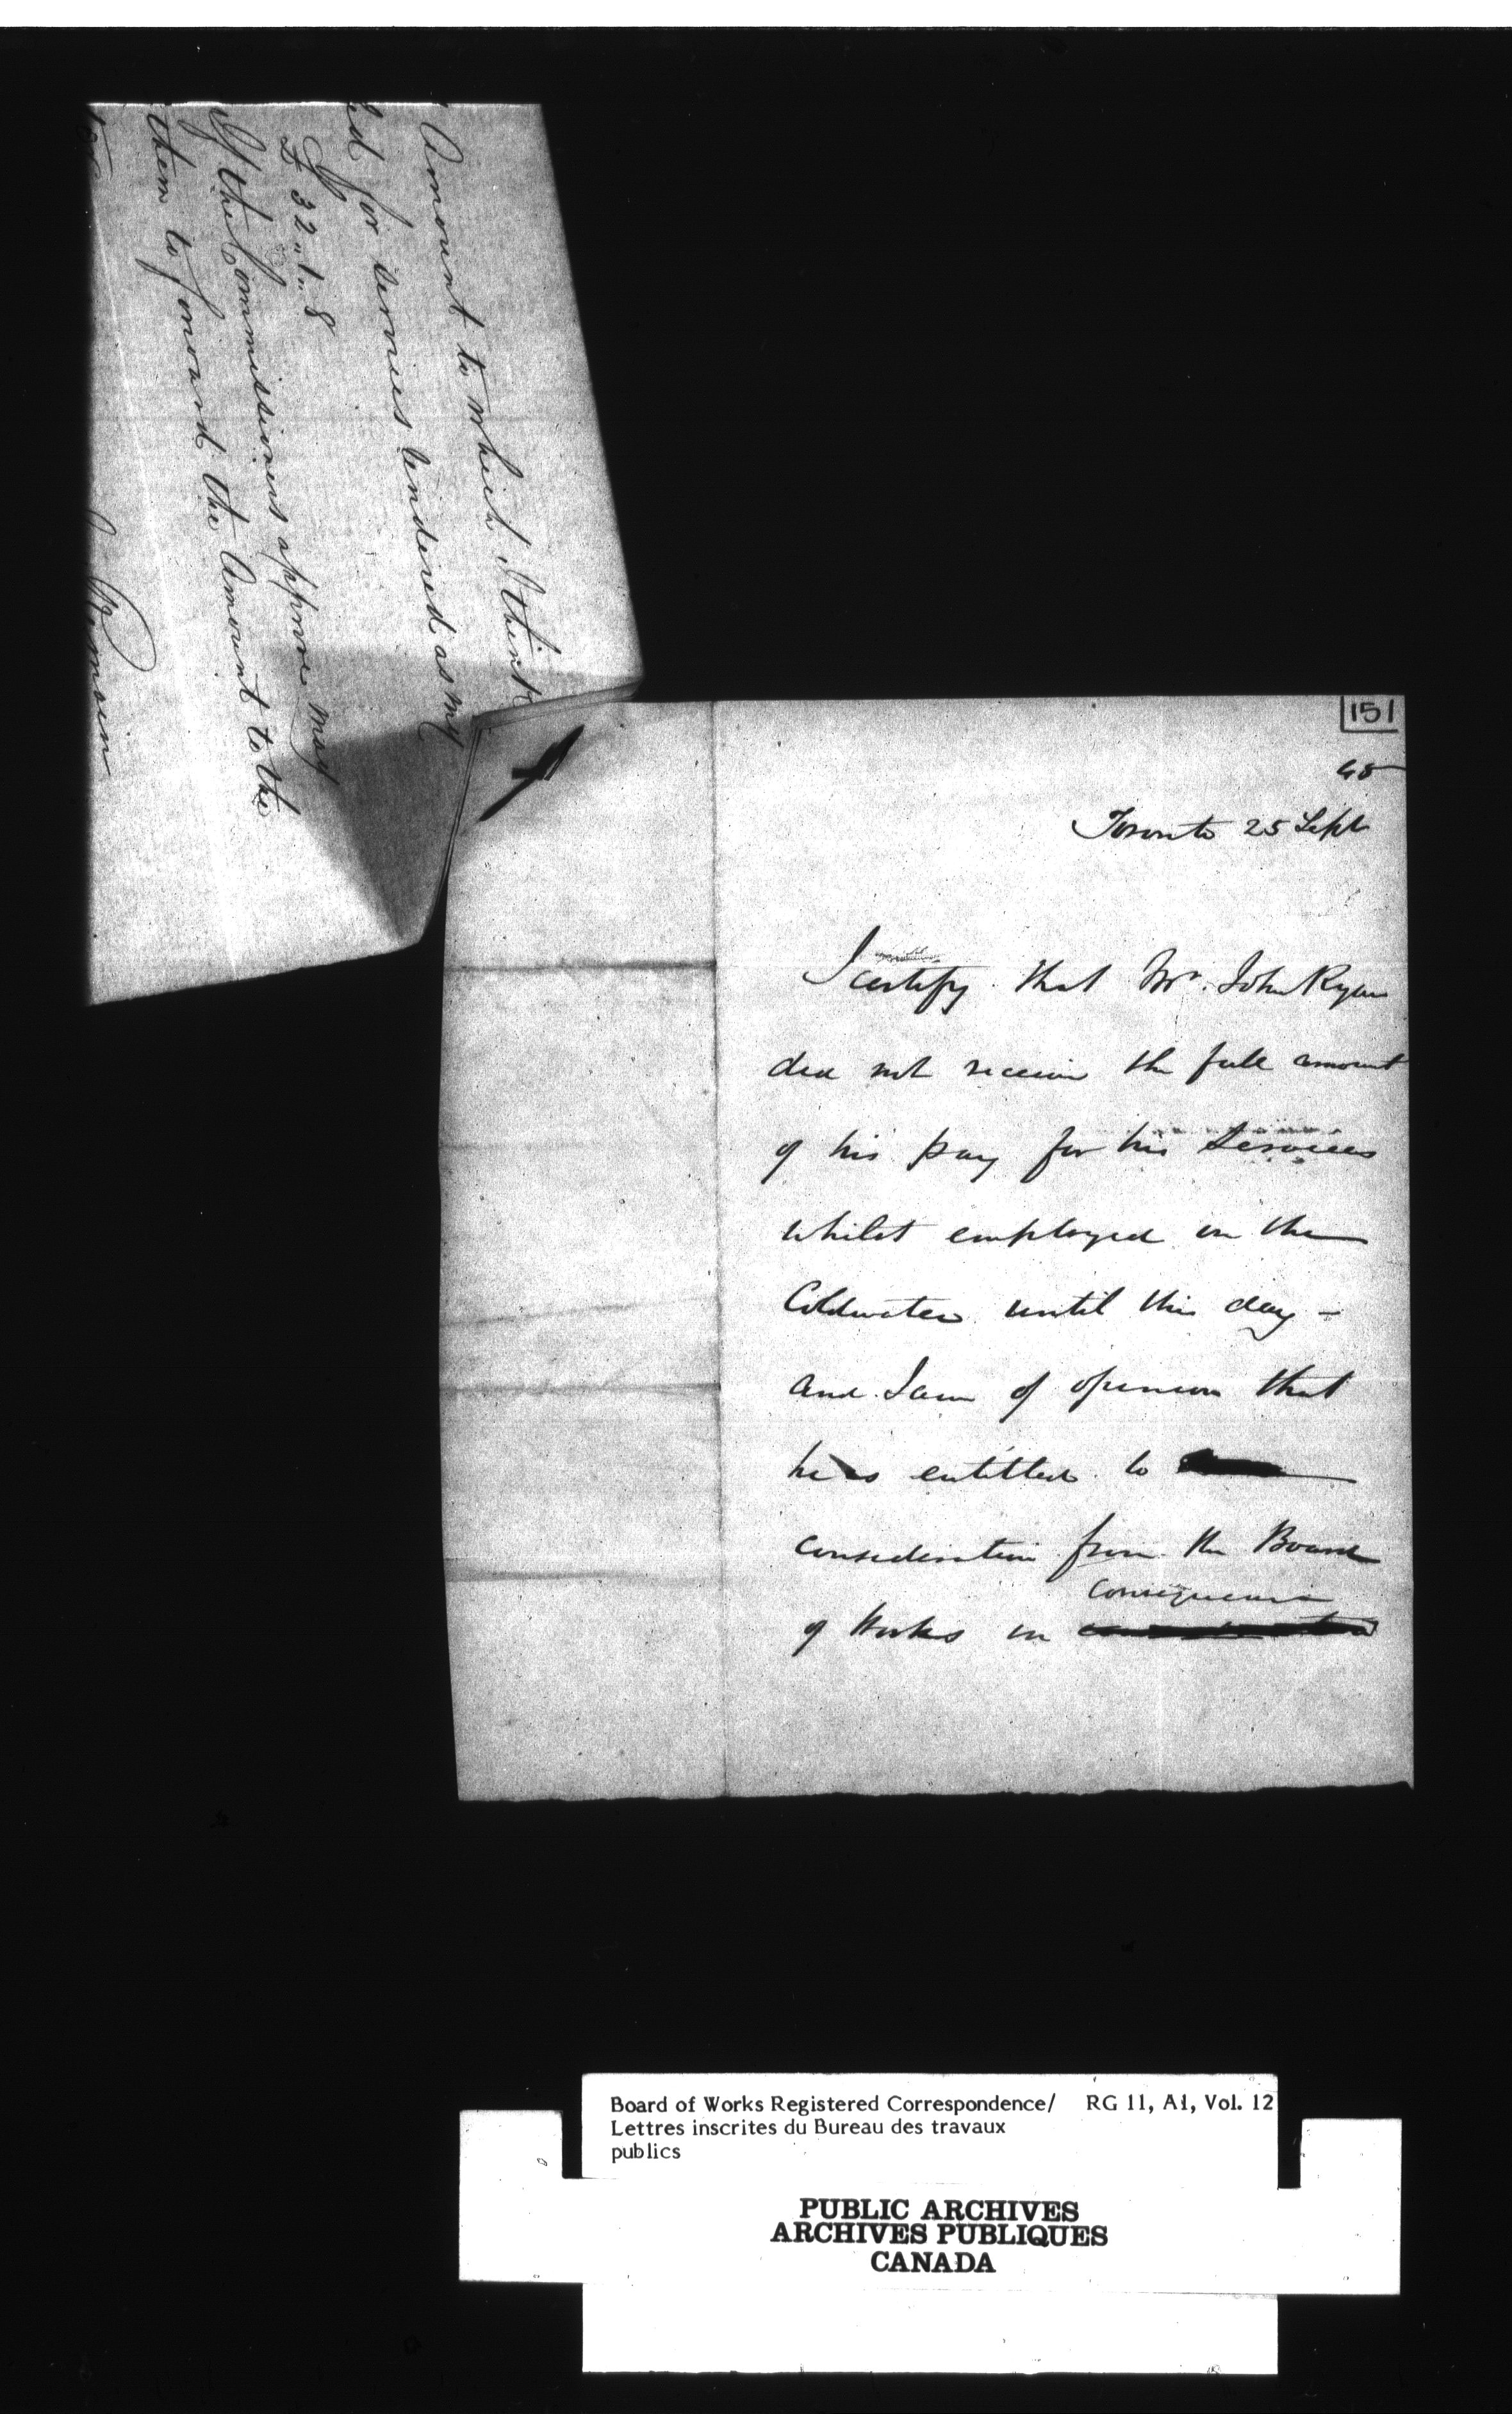 Amount to which I think
ed for services rendered as my
£ 32 ,, 1 ,, 8
If the Commissioners approve may
them to forward the Amount to the
151
Toronto 25 Sept
I certify that Mr. John Ryan
did not receive the full amount
of his pay for his Services
whilst employed on the
Coldwater until this day –
and I am of opinion that
he is entitled to
consideration from the Board
consequence
of Works in
Board of Works Registered Correspondence/ RG 11, A1, Vol. 12
Lettres inscrites du Bureau des travaux
publics
PUBLIC ARCHIVES
ARCHIVES PUBLIQUES
CANADA